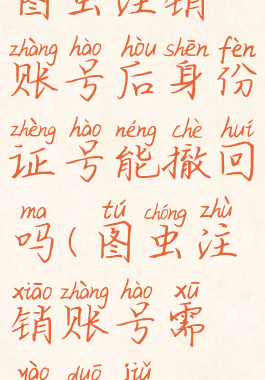 图虫注销
zhàng hào hòu shēn fèn
账号后身份
zhèng hào néng chè huí
证号能撤回
ma tú chóng zhù
吗(图虫注
xiāo zhàng hào xū
销账号需
yào duō jiǔ